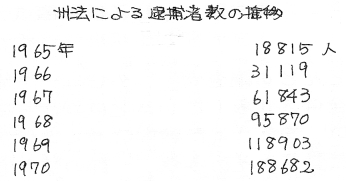 州法による逮捕者数の推移
1965年 18815人
1966 31119
1967 61843
1968 95870
1969 118903
1970 188682